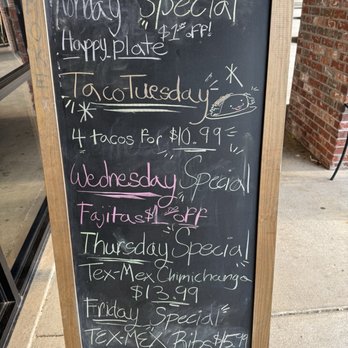 Monday Special
$1 off!
Happy plate
Taco Tuesday
4 tacos for $10.99
Wednesday Special
Fajitas $1.00 off
Thursday Special
Tex-Mex Chimichanga
$13.99
Friday Special
Tex-MEX Ribs